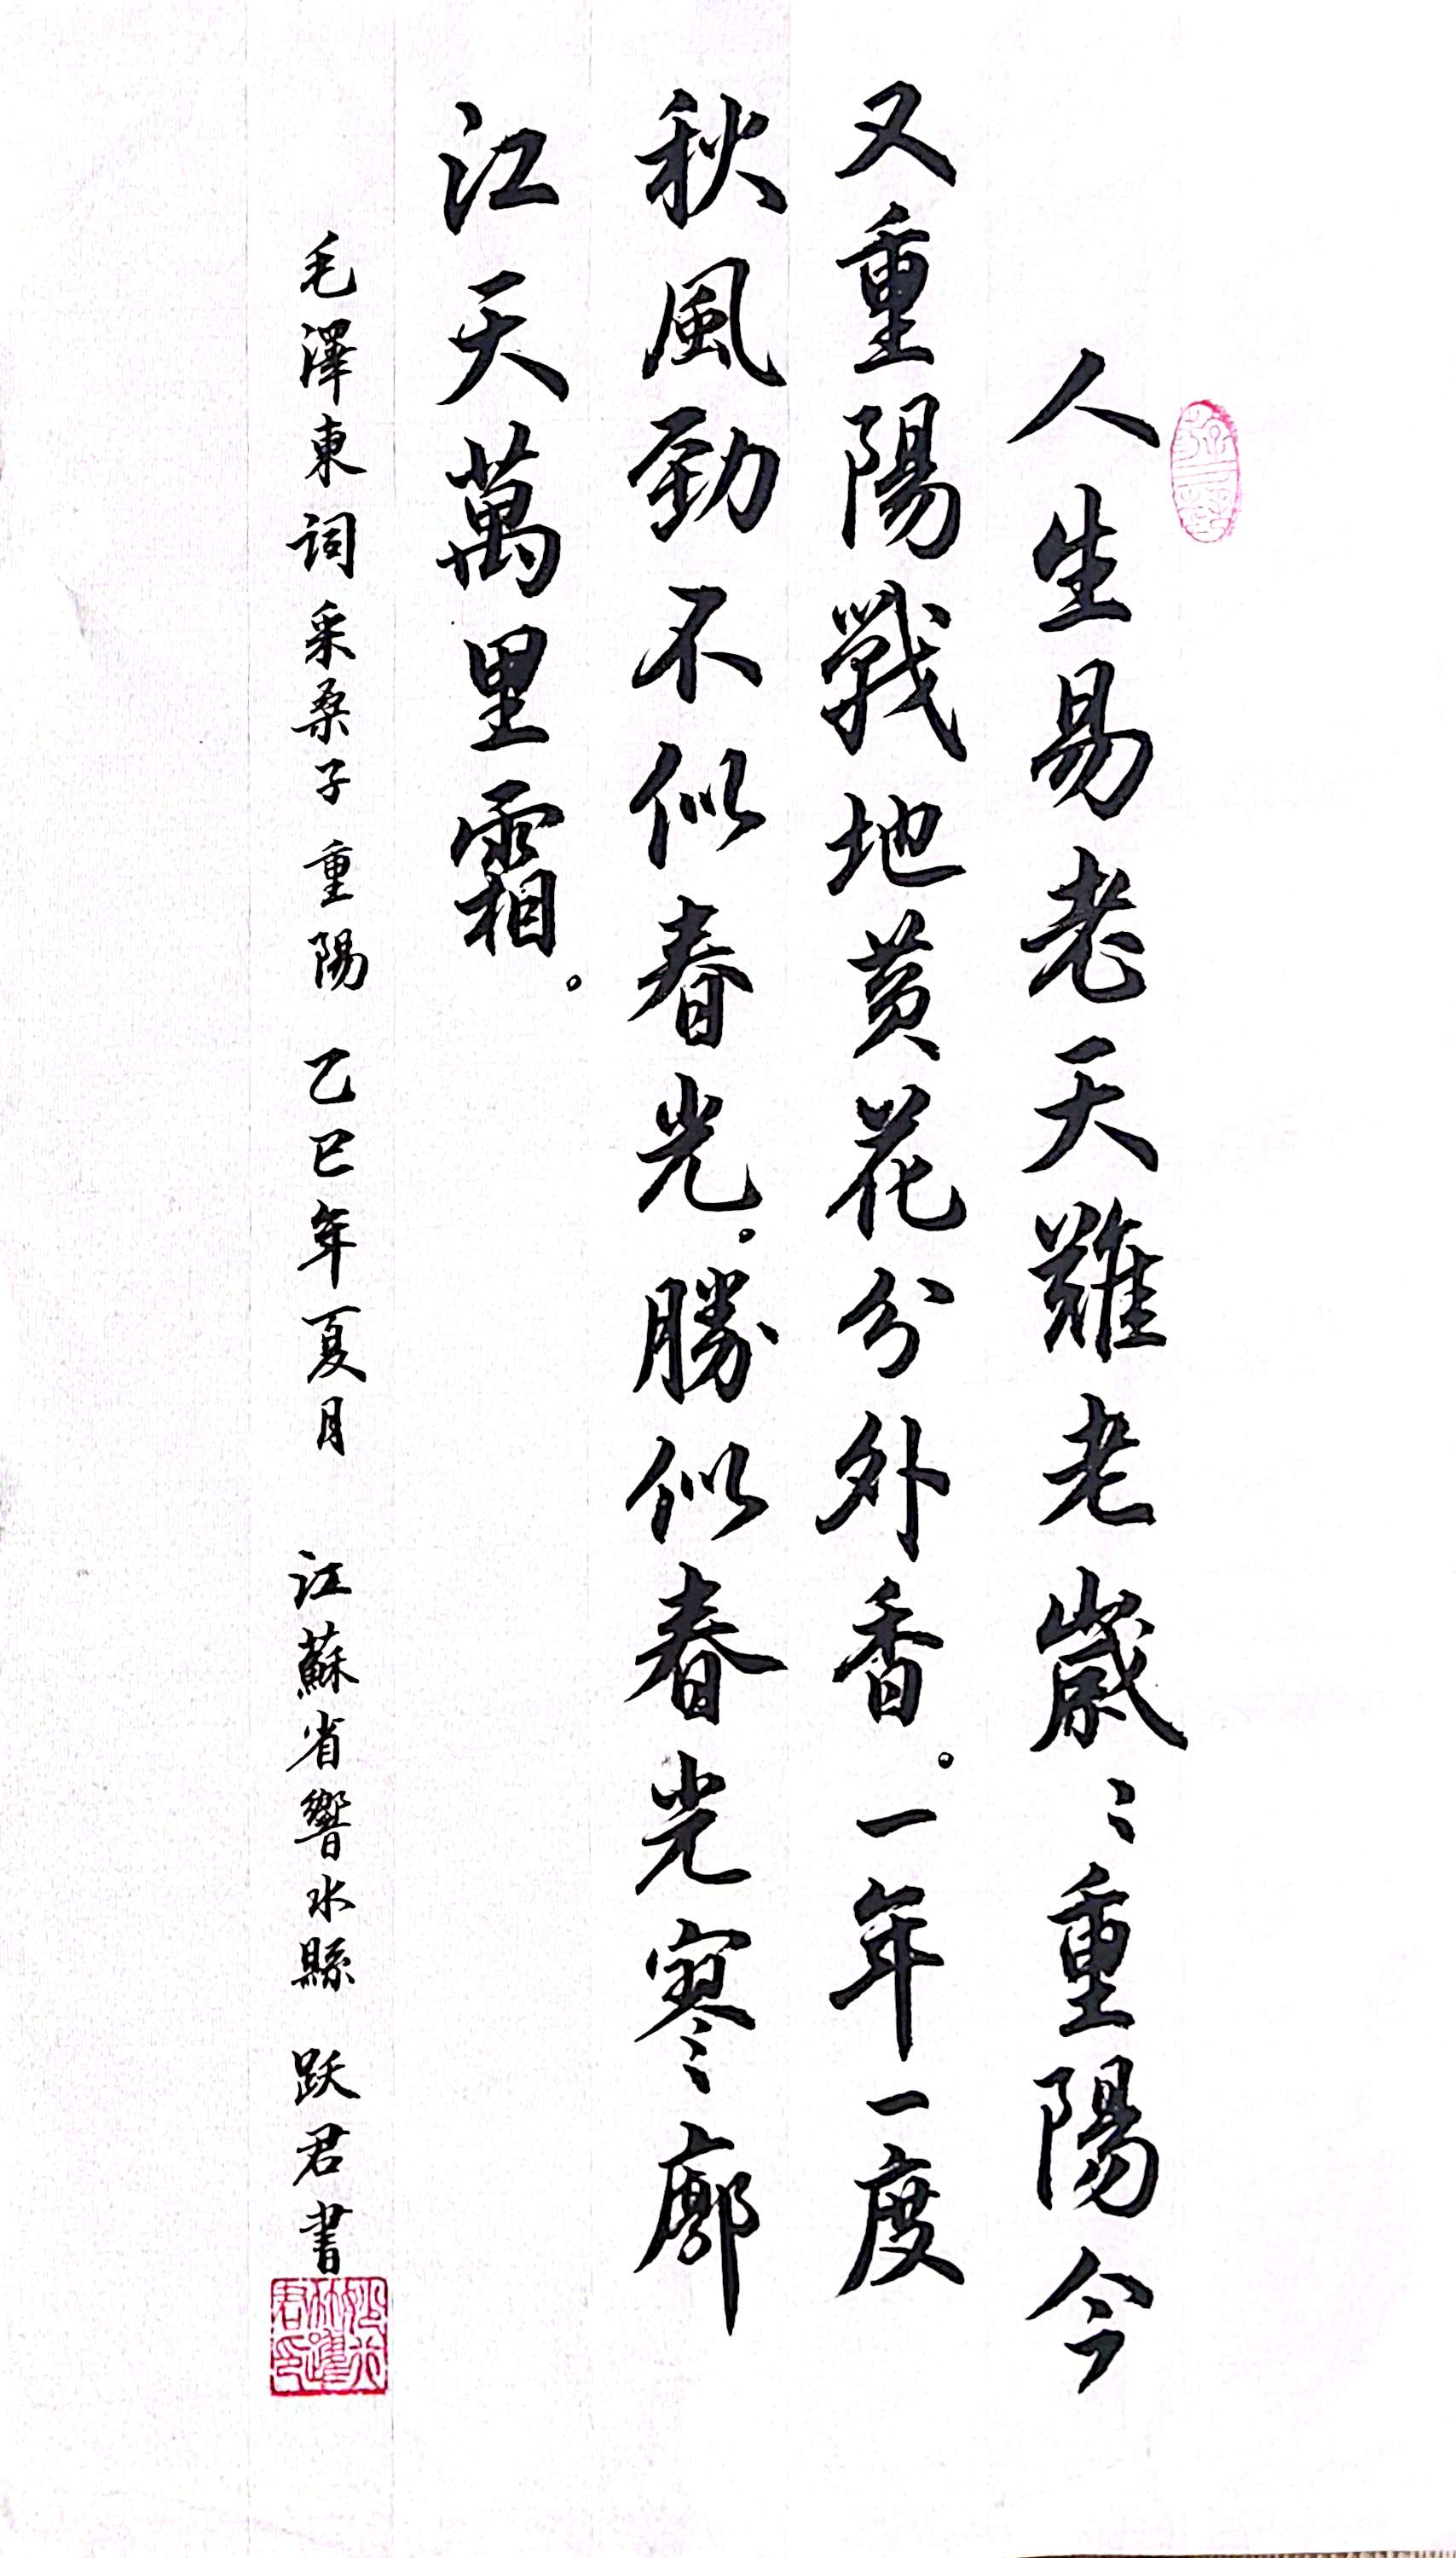 人生易老天難老歲〻重陽今
又重陽戰地黄花分外香。一年一度
秋風勁不似春光。勝似春光寥廓
江天萬里霜。
毛澤東詞采桑子重陽 乙巳年夏月 江蘇省響水縣 跃君書